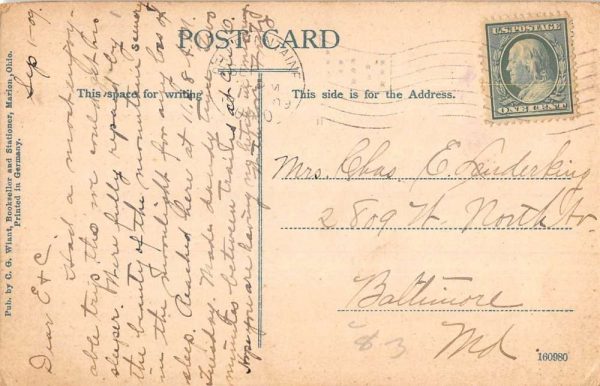 POST CARD
This space for writing
This side is for the Address.
U.S. POSTAGE
ONE CENT
Pub. by C. G. Wiant, Bookseller and Stationer, Marion, Ohio.
Printed in Germany.
Sep 1-09.
Dear E & C
Had a most enjoy-
able trip tho we could get no
sleeper. Were fully repaid by
the beauty of the mountain scenery
in the moonlight for any loss of
sleep. Reached here at 11.18 A.M.
Tuesday. Made dandy time. two
minutes between trains at
Hope you are having
Mrs. Chas. E. Linderking
2809 W. North Av.
Baltimore
Md
83
160980